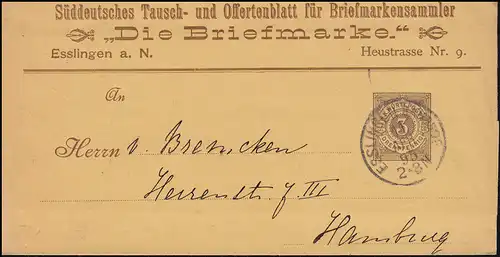 Süddeutsches Tausch- und Offertenblatt für Briefmarkensammler
„Die Briefmarke."
Esslingen a. N. Heustrasse Nr. 9.
An
3
ESSLINGEN
93
2-3N
Herrn v. Bremcken
Herrenstr. f III
Hamburg